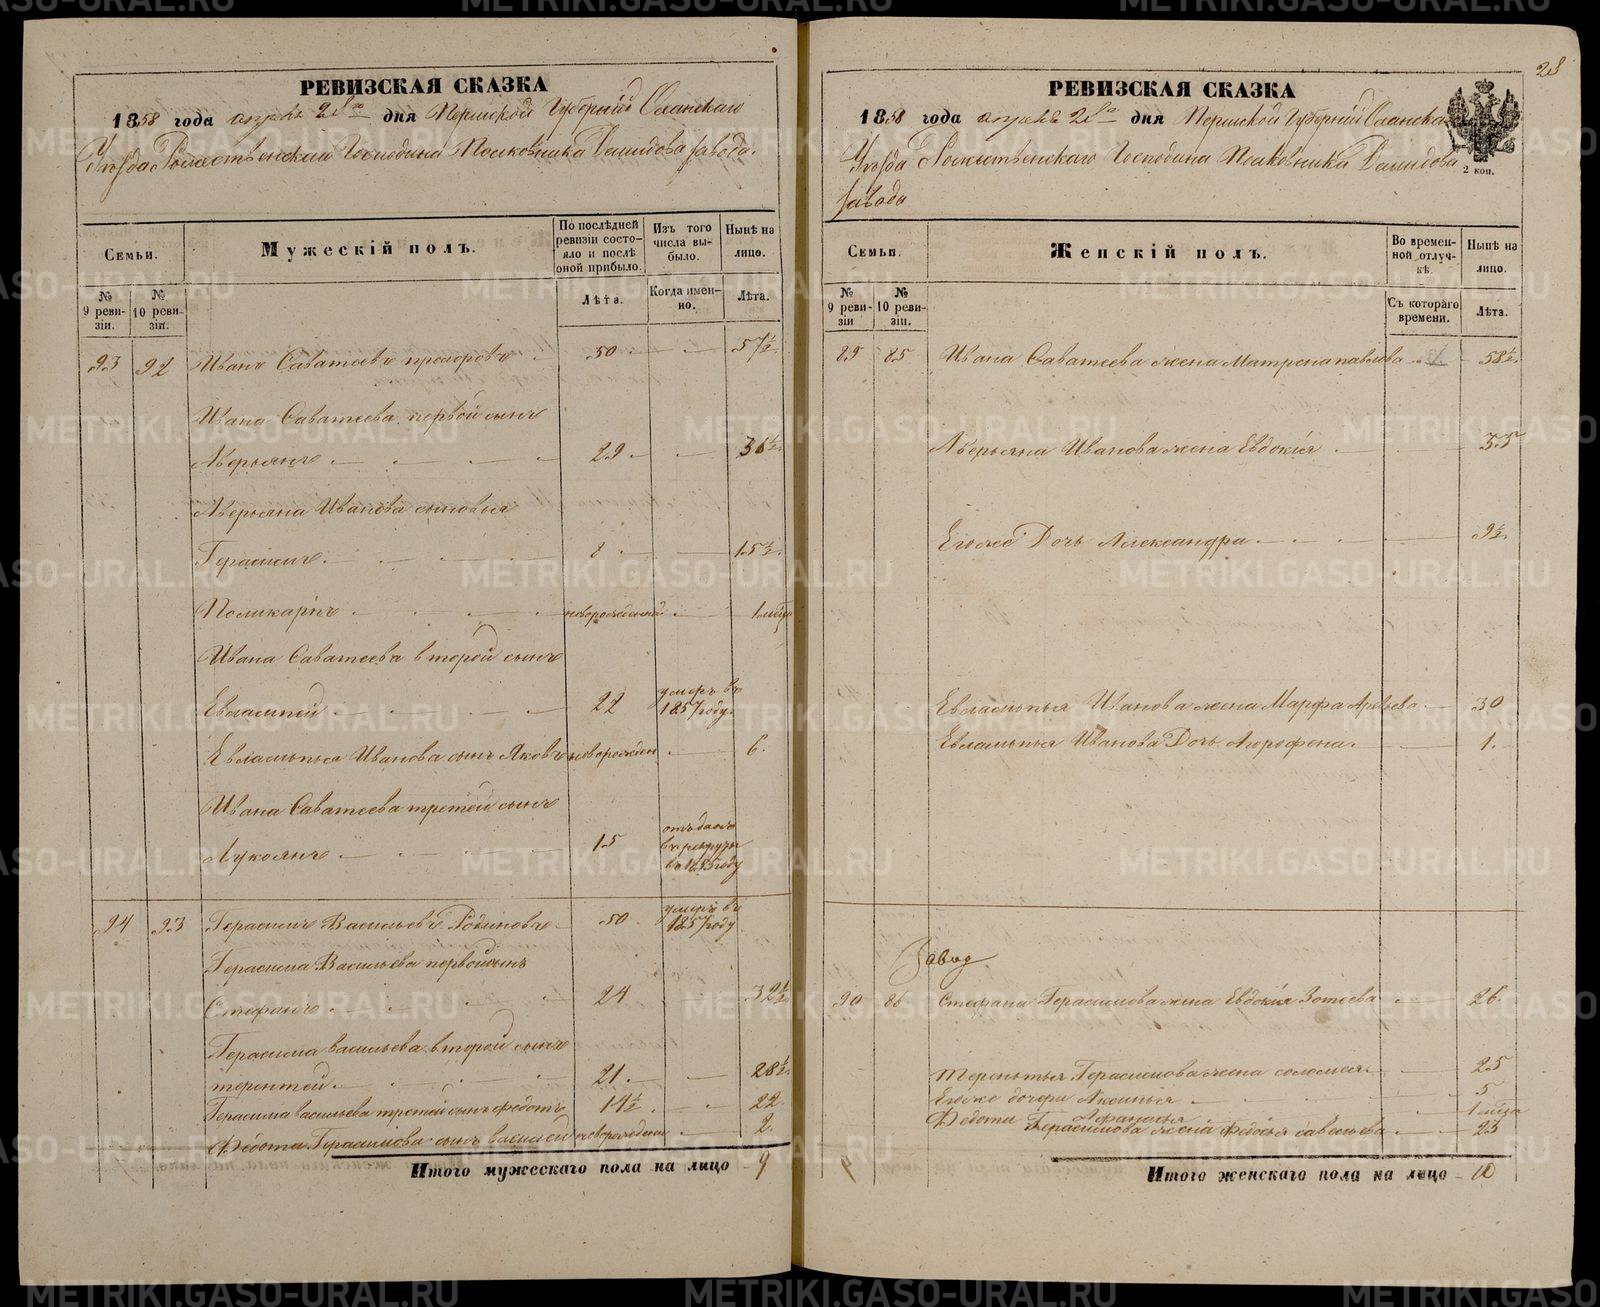 РЕВИЗСКАЯ СКАЗКА
1858 года апреля 28го дня Пермской Губерніи Оханскаго
Уѣзда Рожественскаго Господина Полковника Демидова завода.
Семьи.
Мужескій полъ.
По послѣдней ревизіи состояло и послѣ оной прибыло.
Изъ того числа выбыло.
Нынѣ на лицо.
№ 9 ревизіи.
№ 10 ревизіи.
Лѣта.
Когда именно.
Лѣта.
93 92 Иванъ Саватеевъ 50 57½
Ивана Саватеева первой сынъ
Аверьянъ 29 36½
Аверьяна Иванова сыновья
Герасимъ 8 15½
Поликарпъ новорожденной 1 мѣся
Ивана Саватеева второй сынъ
Евлампей 22 умеръ въ 1857 году.
Евлампья Иванова сынъ Яковъ новорожден 6.
Ивана Саватеева третей сынъ
Лукоянъ 15 отъданъ в рекруты въ 1855 году
94 93 Герасимъ Васильевъ Родионовъ 50 умеръ въ 1857 году
Герасима Васильева первой сынъ
Стефанъ 24 32½
Герасима Васильева второй сынъ
терентей 21 28½
Герасима васильева третей сынъ Федотъ 14½ 22
Федота Герасимова сынъ василей новорожден 2.
Итого мужескаго пола на лицо 9
28
РЕВИЗСКАЯ СКАЗКА
1858 года апреля 28го дня Пермской Губерніи Оханскаго
Уѣзда Рожественскаго Господина Полковника Демидова
завода
2 коп.
Семьи.
Женскій полъ.
Во временной отлучкѣ.
Нынѣ на лицо.
№ 9 ревизіи
№ 10 ревизіи.
Съ котораго времени.
Лѣта.
89 85 Ивана Саватеева жена Матрена павлова 58½
Аверьяна Иванова жена Евдокія 35
Егоже Дочь Александра 9½
Евлампья Иванова жена Марфа 30
Евлампья Иванова Дочь 1.
Завод
90 86 Стефана Герасимова жена Евдокія Зотеева 26.
Терентья Герасимова жена соломея 25
Егоже дочери Аксинья 5
Афанасья 1 мѣся
Федота Герасимова жена Федосья савельева 23
Итого женскаго пола на лицо 10
METRIKI.GASO-URAL.RU